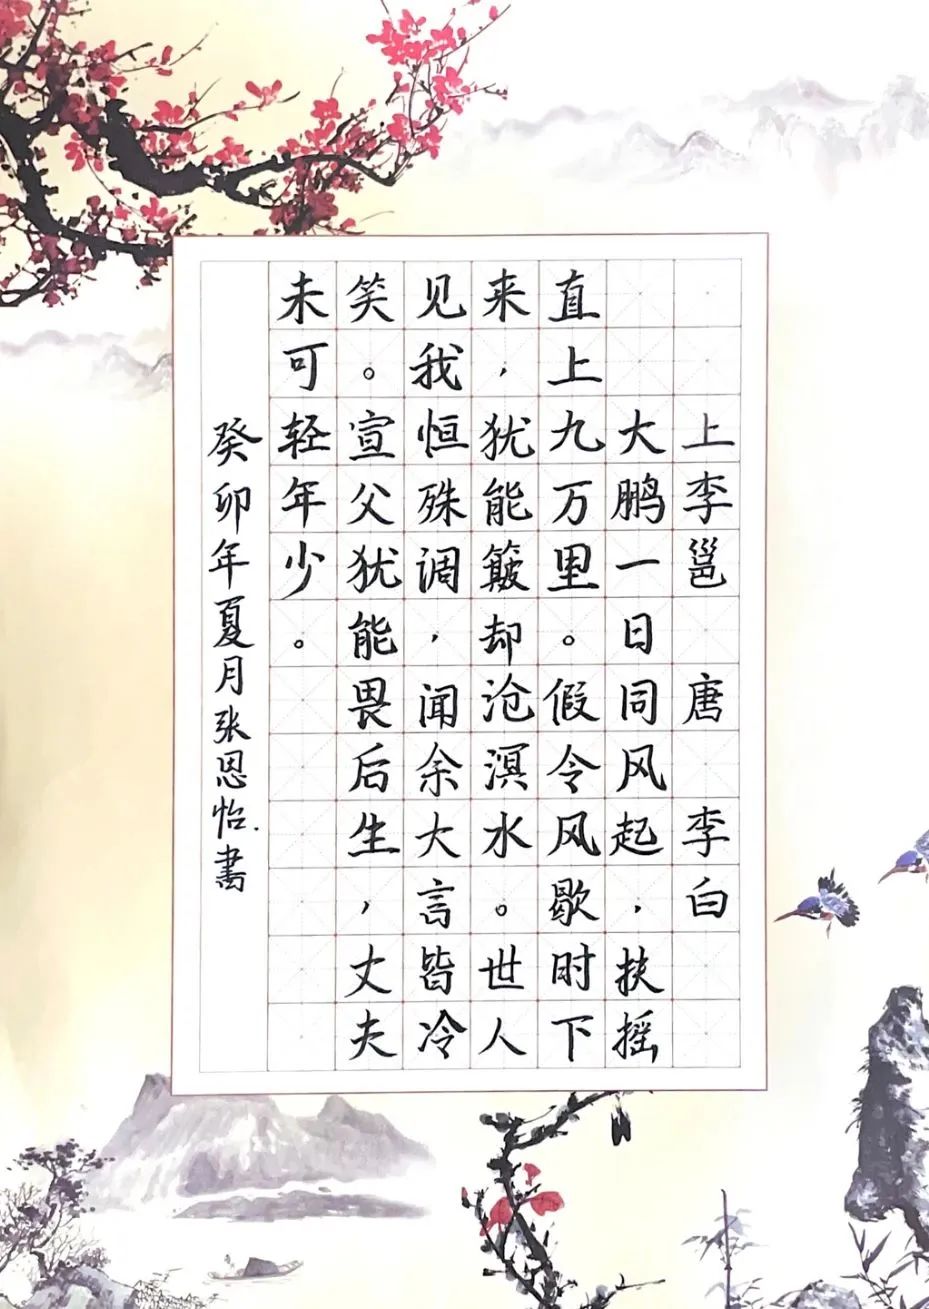 上李邕 唐 李白
大鹏一日同风起，扶摇
直上九万里。假令风歇时下
来，犹能簸却沧溟水。世人
见我恒殊调，闻余大言皆冷
笑。宣父犹能畏后生，丈夫
未可轻年少。
癸卯年夏月张恩怡書